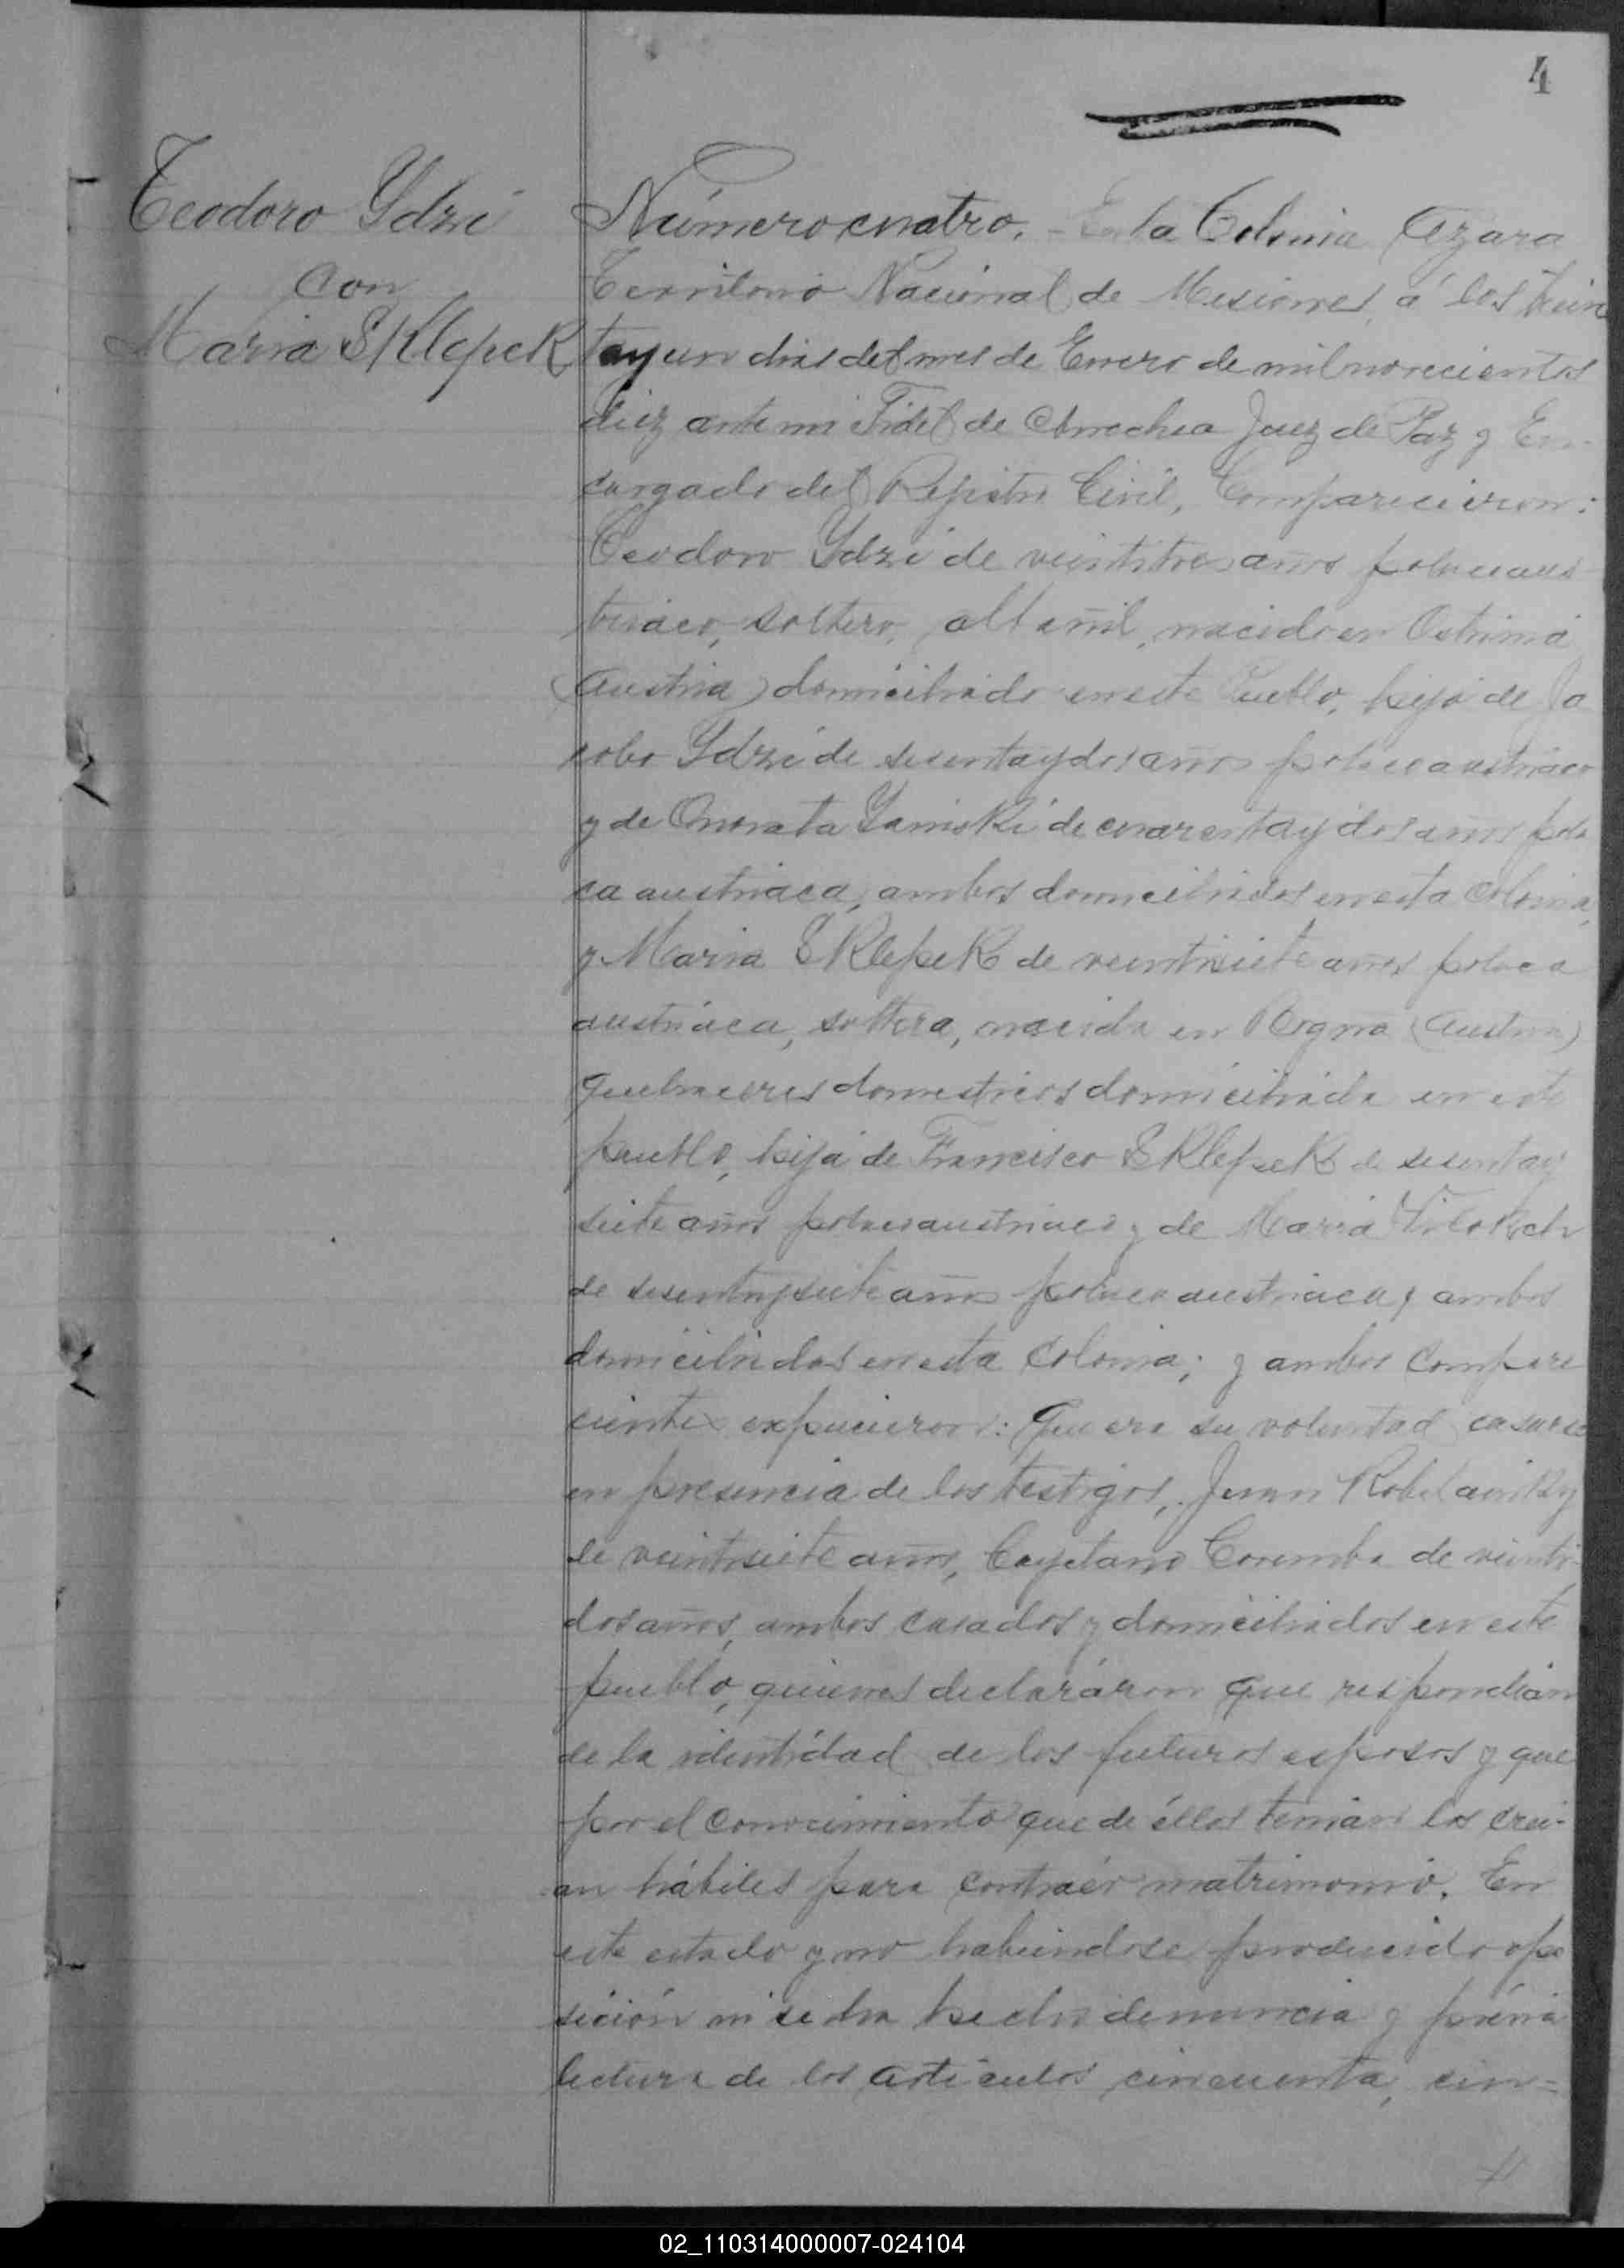 4
Teodoro Ydzi
con
Maria SKlepeK
Número cuatro. - En la Colonia Azara
Territorio Nacional de Misiones, á los trein
tay un dias del mes de Enero de mil novecientos
diez ante mi Fidel de Arrechea Juez de Paz y En-
cargado del Rejistro Civil, Comparecieron:
Teodoro Ydzi de veintitres años polaco aus
triaco, soltero, albañil, nacido en
(Austria) domiciliado en este Pueblo, hijo de Ja
cobo Ydzi de sesenta y dos años polaco austriaco
y de Onorata YanisKi de cuarenta y dos años pola
ca austriaca, ambos domiciliados en esta Colonia,
y Maria SKlepeK de veintisiete años polaca
austriaca, soltera, nacida en Rogna (Austria)
quehaceres domesticos domiciliada en este
pueblo, hija de Francisco SKlepeK de sesenta y
siete años polaco austriaco y de Maria
de sesentaysiete años polaca austriaca, ambos
domiciliados en esta colonia; y ambos compare
cientes expucieron: Que era su voluntad casarse
en presencia de los testigos, Juan
de veintisiete años, Cayetano Corumba de veinti
dos años, ambos casados y domiciliados en este
pueblo, quienes declaráron que respondian
de la identidad de los futuros esposos y que
por el conocimiento que de éllos tenian los crei-
an hábiles para contraér matrimonio. En
este estado y no habiendose producido opo
sición ni se ha hecho denuncia y prévia
lectura de los articulos cincuenta, cin=
02_110314000007-024104